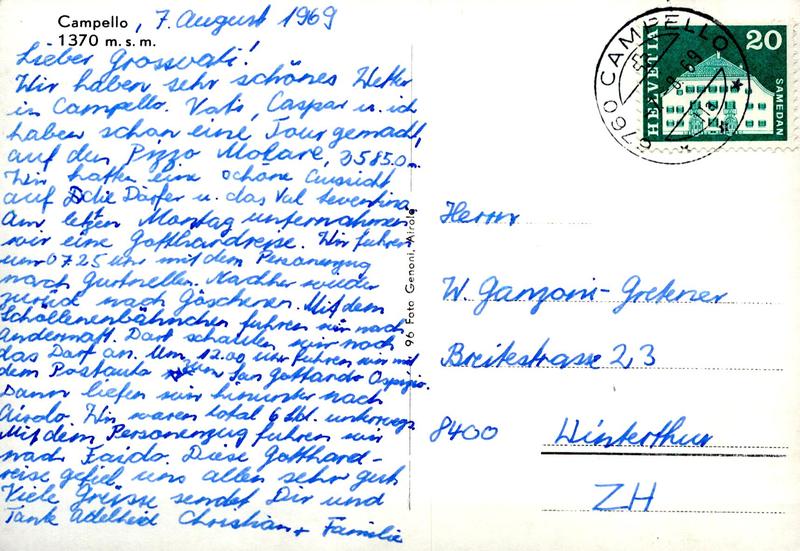 Campello , 7. August 1969
1370 m. s. m.
Lieber Grossvati!
Wir haben sehr schönes Wetter
in Campello. Vati, Caspar u. ich
haben schon eine Tour gemacht,
auf den Pizzo Molare, 2585.0 m.
Wir hatten eine schöne Aussicht
auf die Dörfer u. das Val Leventina
Am letzten Montag unternahmen
wir eine Gotthardreise. Wir fuhren
um 07.25 Uhr mit dem Personenzug
nach Gurtnellen. Nachher wieder
zurück nach Göschenen. Mit dem
Schöllenenbähnchen fuhren wir nach
Andermatt. Dort schauten wir noch
das Dorf an. Um 12.00 Uhr fuhren wir mit
dem Postauto zum San Gottardo Ospizio.
Dann liefen wir hinunter nach
Airolo. Wir waren total 6 Std. unterwegs
Mit dem Personenzug fuhren wir
nach Faido. Diese Gotthard-
reise gefiel uns allen sehr gut
Viele Grüsse sendet Dir und
Tante Adelheid Christian + Familie
96 Foto Genoni, Airolo
6760 CAMPELLO
HELVETIA
20
SAMEDAN
Herrn
W. Ganzoni-Gretener
Breitestrasse 23
8400 Winterthur
ZH